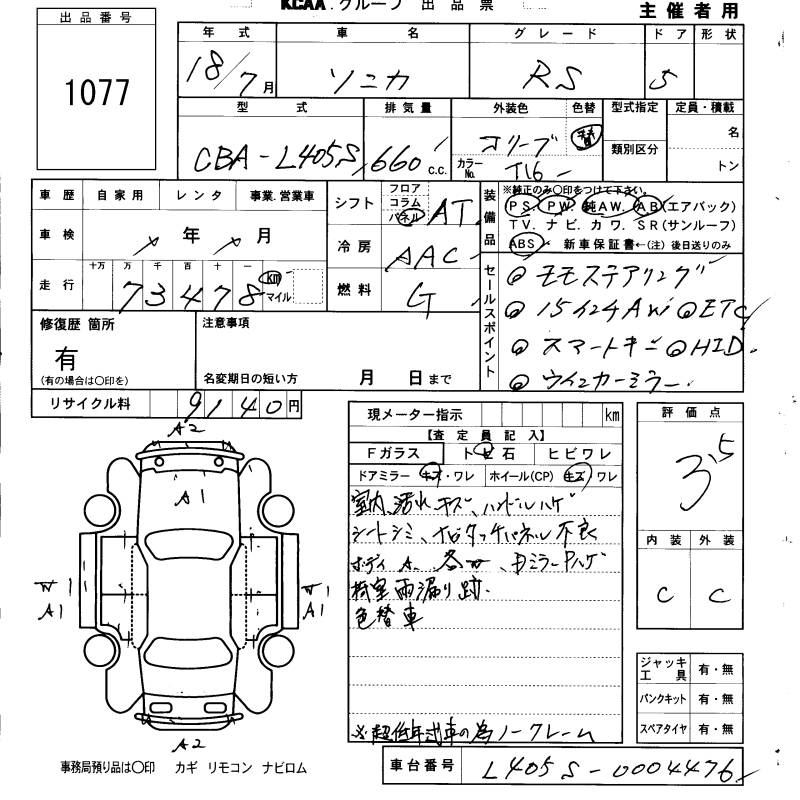 KCAA.グループ 出品票
主催者用
出品番号
1077
年式 車名 グレード ドア 形状
18/7月 ソニカ RS 5
型式 排気量 外装色 色替 型式指定 定員・積載
CBA-L405S 660 c.c. オリーブ 替 類別区分 名
カラーNo. T16- トン
車歴 自家用 レンタ 事業.営業車
車検 年 月
走行 十万 万 千 百 十 一 km マイル
73478
シフト フロア コラム パネル AT
冷房 AAC
燃料 G
装備品
※純正のみ○印をつけて下さい。
PS. PW. 純AW. AB(エアバック)
TV. ナビ. カワ. SR(サンルーフ)
ABS 新車保証書←(注) 後日送りのみ
セールスポイント
◎モモステアリング
◎15インチAW ◎ETC
◎スマートキー ◎HID.
◎ウインカーミラー.
修復歴 箇所
有
(有の場合は○印を)
注意事項
名変期日の短い方 月 日まで
リサイクル料 9140円
現メーター指示 km
【査定員記入】
Fガラス トビ石 ヒビワレ
ドアミラー キズ・ワレ ホイール(CP) キズ ワレ
室内汚れキズ、ハンドルハゲ
シートシミ、ナビタッチパネル不良
ボディA. ミラーPハゲ
荷室雨漏り跡.
色替車
※超低年式車の為ノークレーム
評価点
3.5
内装 外装
C C
ジャッキ工具 有・無
パンクキット 有・無
スペアタイヤ 有・無
A2
A1
W1
A1
W1
A1
A2
事務局預り品は○印 カギ リモコン ナビロム
車台番号 L405S-0004476